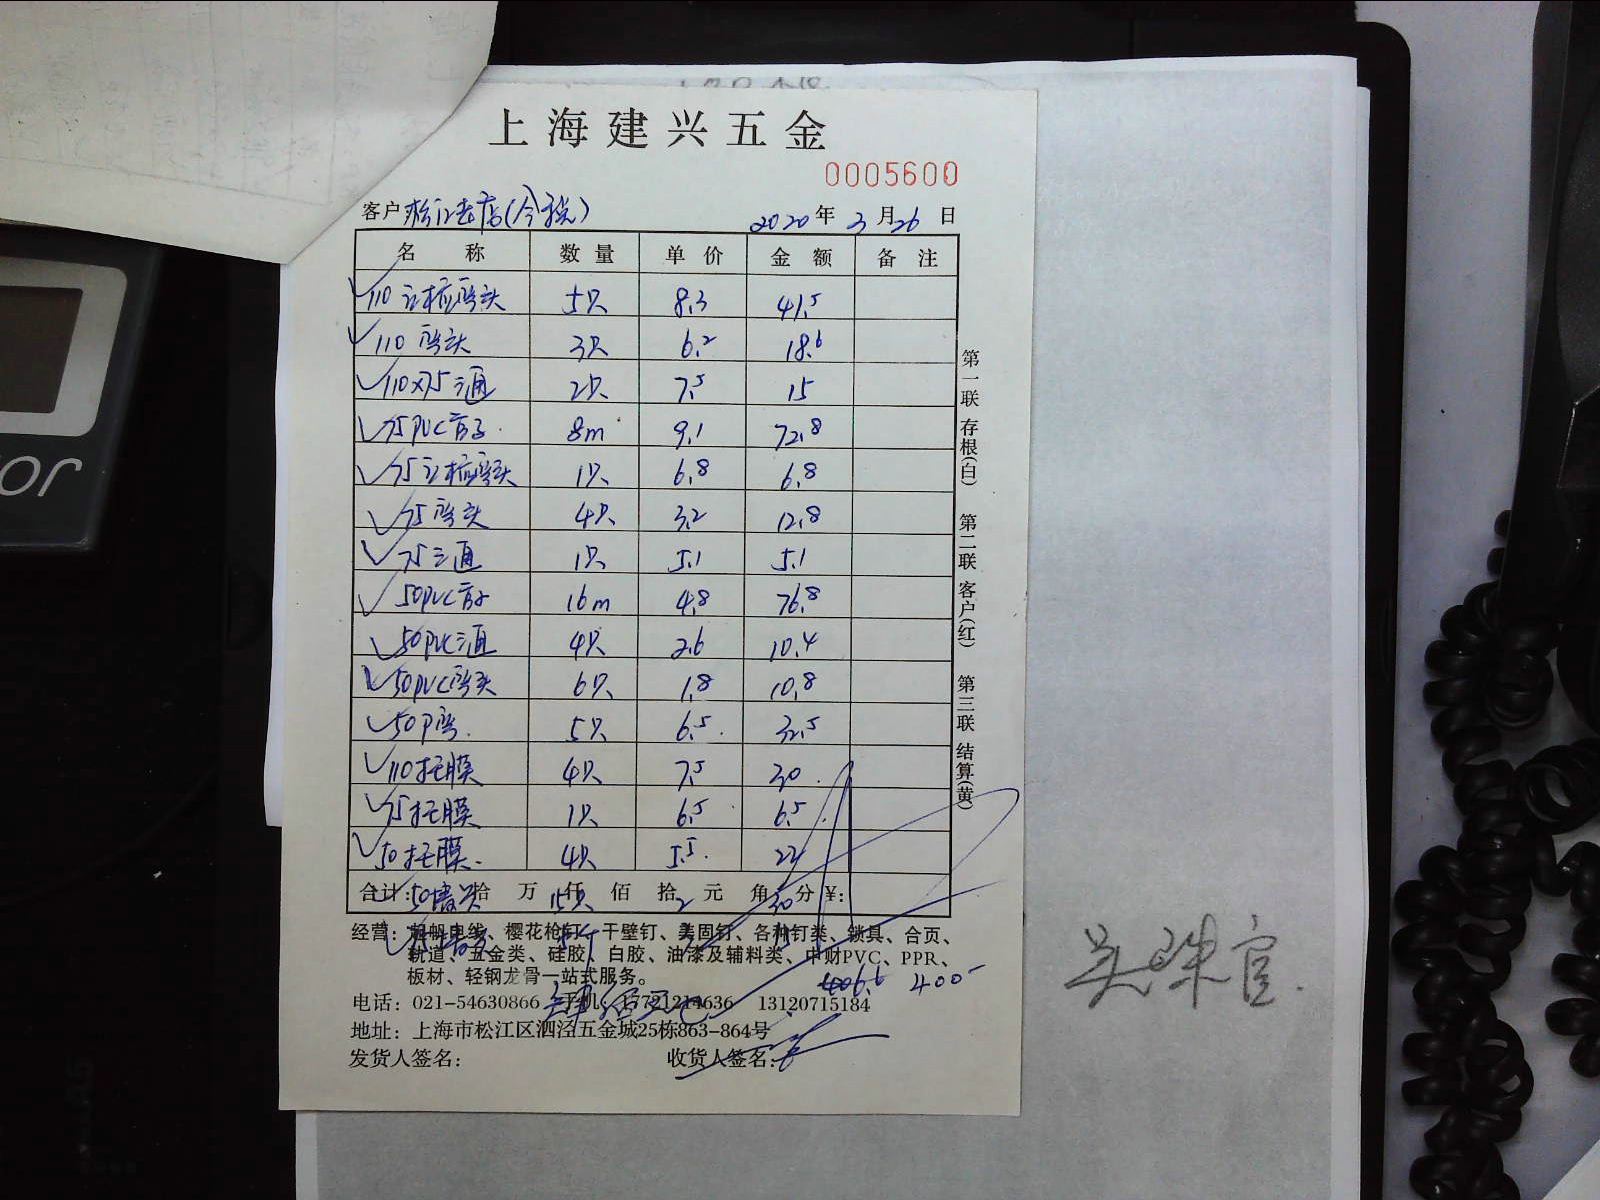 上海建兴五金
0005600
客户 松江老店(含税) 2020年3月26日
名称 数量 单价 金额 备注
110立检弯头 5只 8.3 41.5
110弯头 3只 6.2 18.6
110x75三通 2只 7.5 15
75PVC管子 8m 9.1 72.8
75立检弯头 1只 6.8 6.8
75弯头 4只 3.2 12.8
75三通 1只 5.1 5.1
50PVC管子 16m 4.8 76.8
50PVC三通 4只 2.6 10.4
50PVC弯头 6只 1.8 10.8
50P弯 5只 6.5 32.5
110托膜 4只 7.5 30
75托膜 1只 6.5 6.5
50托膜 4只 5.5 22
合计: 拾 万 仟 佰 拾 元 角 分 ¥:
15只 2 30
经营: 帆帆电线、樱花枪钉、干壁钉、美固钉、各种钉类、锁具、合页、
轨道、五金类、硅胶、白胶、油漆及辅料类、中财PVC、PPR、
板材、轻钢龙骨一站式服务。
406.6 400
电话: 021-54630866 手机: 17721214636 13120715184
地址: 上海市松江区泗泾五金城25栋863-864号
发货人签名: 收货人签名:
第一联 存根(白) 第二联 客户(红) 第三联 结算(黄)
吴珠官
or